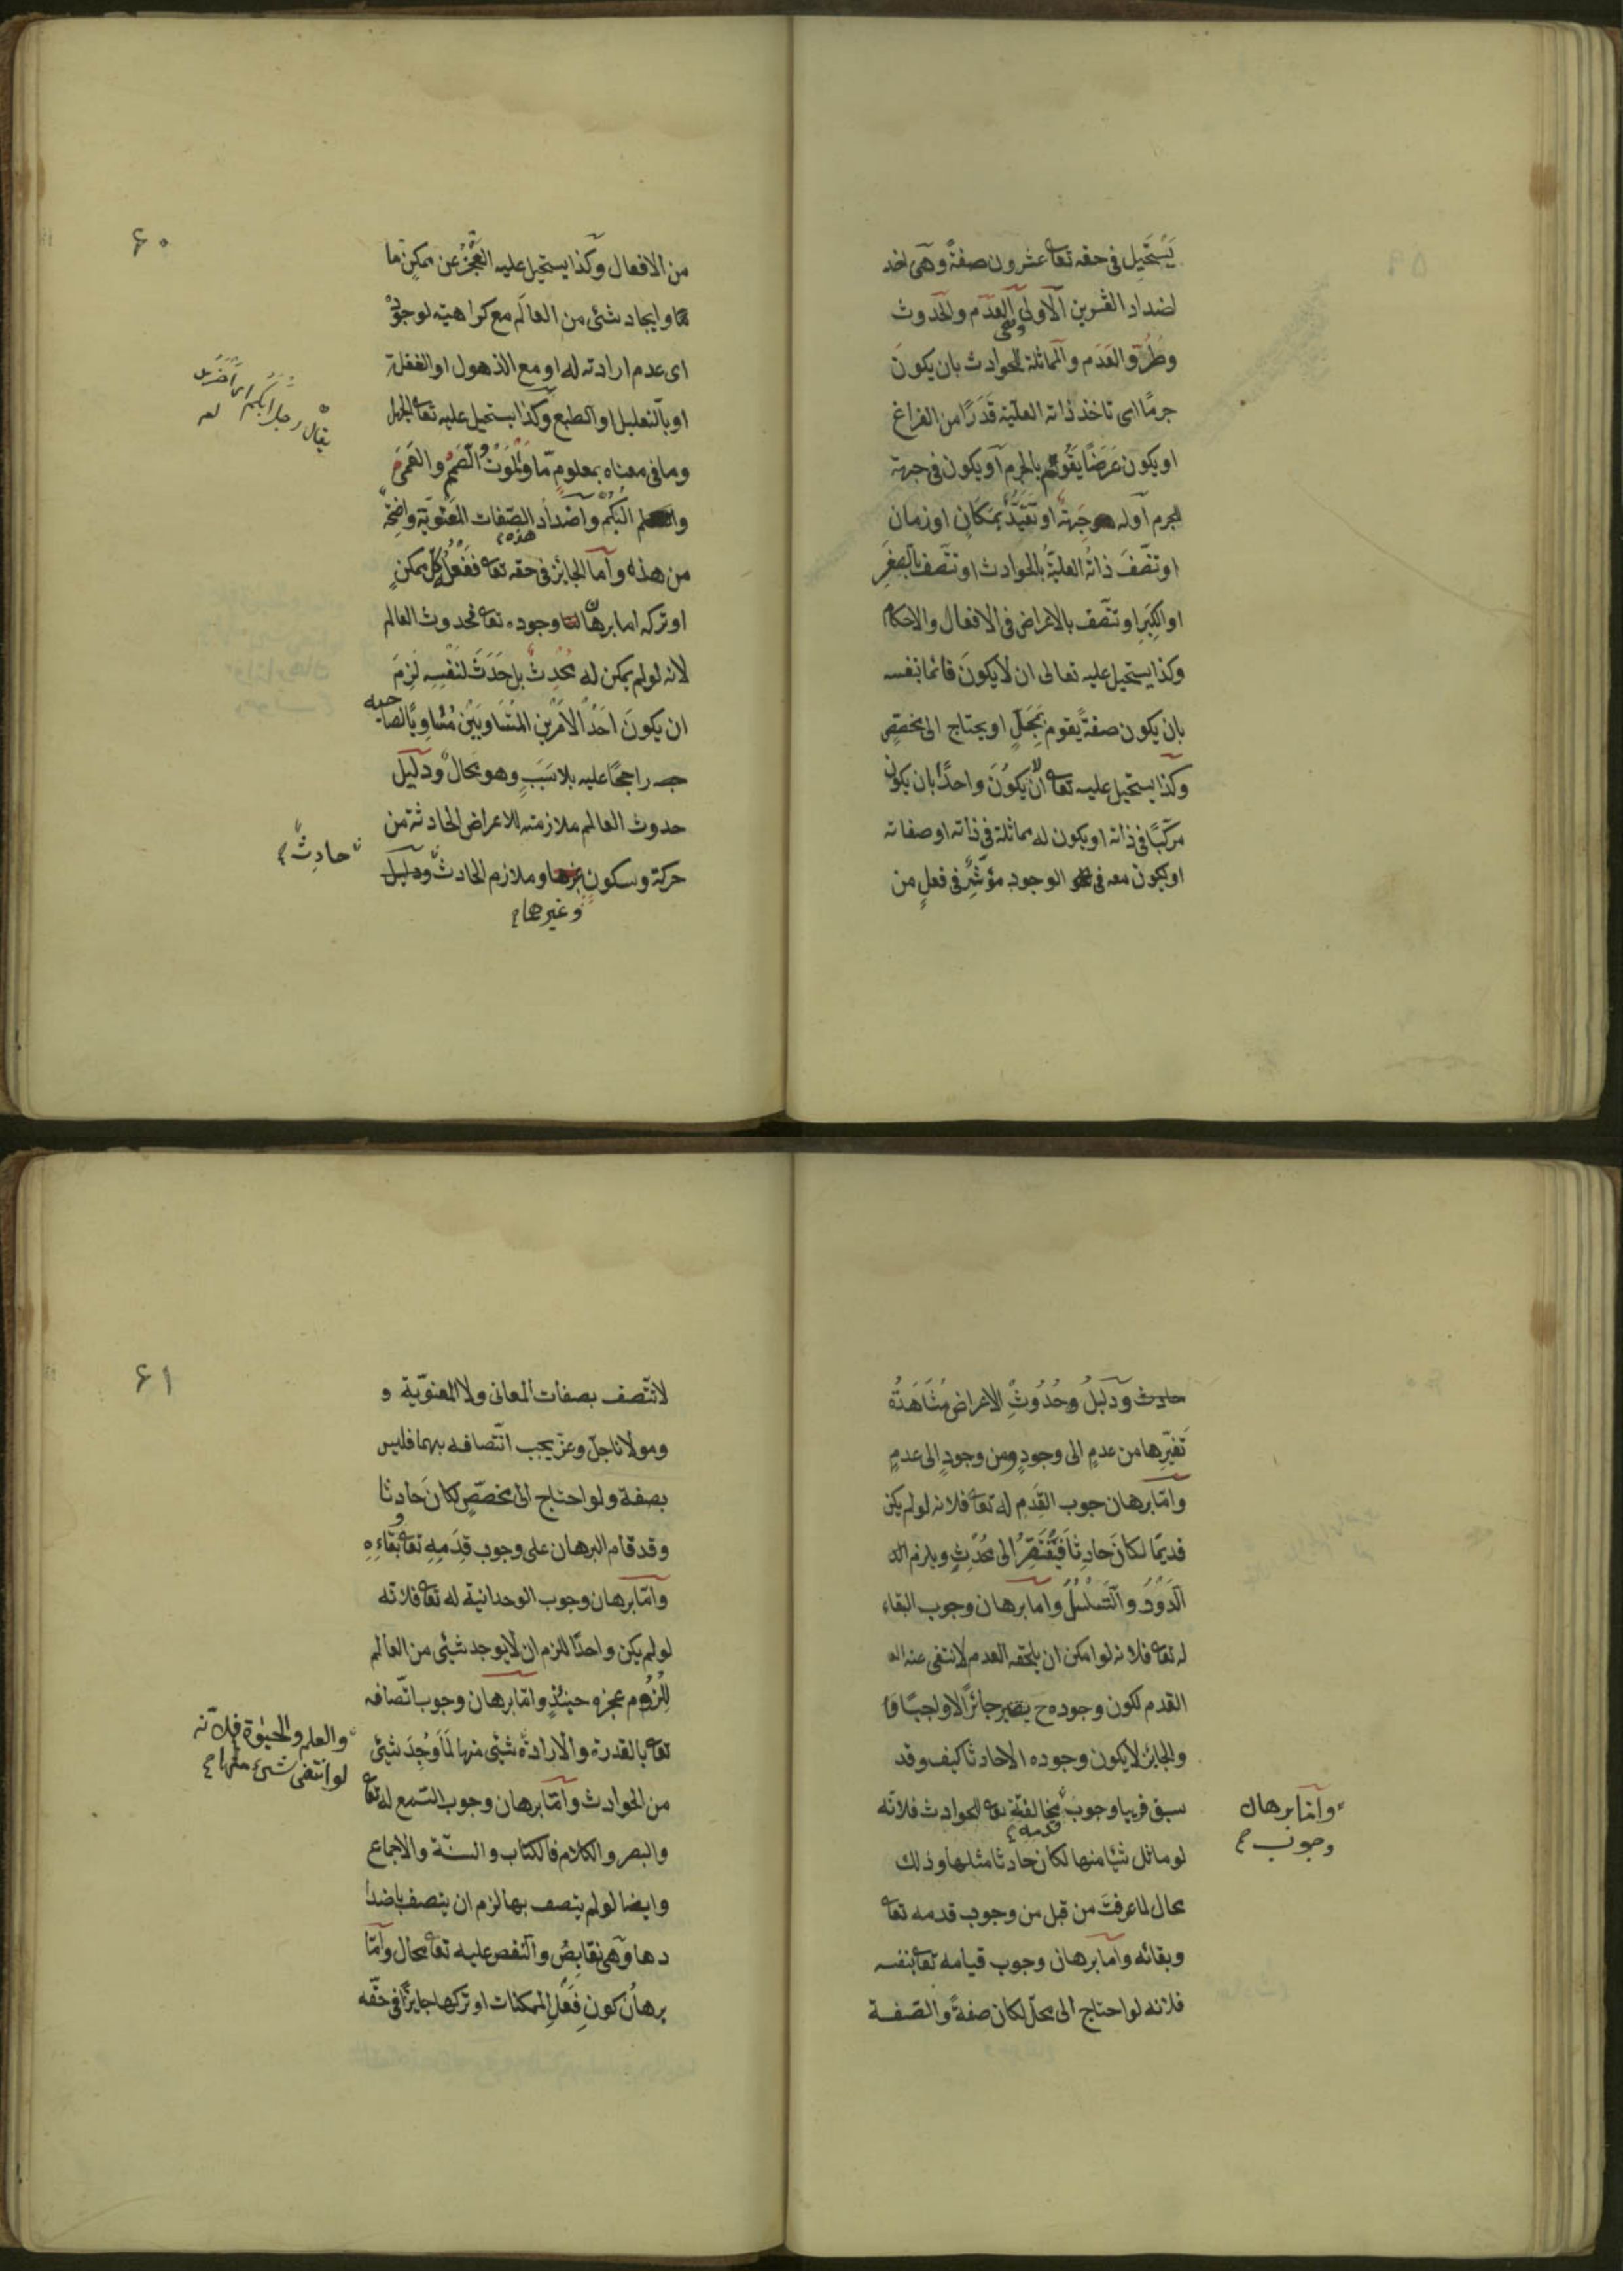 يَسْتَحِيل فى حقه تعا عشرون صفةً وهى اضد
لضداد العشرين الاولى وهى العَدَم والحدوث
وطُرُوّ العَدَم والمماثلة للحوادث بان يكونَ
جرمًا اى تاخذ ذاته العليّة قَدَرًا من الفراغ
او يكون عَرَضًا يَقُومُ بالجرم او يكون فى جهة
للجرم او له جِهَةٌ او تَقَيَّدُ بمَكَانٍ او زمان
او تتّصفَ ذاتُه العليّةُ بالحوادث او تتّصف بالصِّغَرِ
او الكِبَرِ او تتّصف بالاغراض فى الافعال والاحكام
وكذا يستحيل عليه تعالى ان لا يكونَ قائما بنفسه
بان يكون صفةً يقوم بمَحَلٍّ او يحتاج الى مخصّصٍ
وكذا يستحيل عليه تعا انْ لا يكُونَ واحدًا بان يكونَ
مركّبًا فى ذاته او يكون له مماثلة فى ذاته او صفاته
او يكون معه فى الوجود مؤثّرٌ فى فعلٍ من
۶۰
من الافعال وكذا يستحيل عليه العَجْزُ عن ممكنٍ ما
او ايجاد شئى من العالَم مع كراهيته لوجوده
اى عدم ارادته له او مع الذهول او الغفلة
او بالتعليل او الطبع وكذا يستحيل عليه تعا الجهل
وما فى معناه بمعلومٍ ما والمَوْتُ والصَّمَمُ والعَمَىٰ
والبُكْمُ واضدادُ الصّفات المَعْنَويّة واضِحَةٌ
من هذه وامّا الجائز فى حقه تعا فَفِعْلُ كلِّ ممكنٍ
او تركه اما برهان وجوده تعا فحدوث العالم
لانه لو لم يكن له مُحْدِثٌ بل حَدَثَ لنَفْسِهِ لَزِمَ
ان يكونَ اَحَدُ الاَمْرَيْنِ المتَسَاوِيَيْن مُسَاوِيًا لصاحبه
راجحًا عليه بلا سَبَبٍ وهو محَالٌ ودليل
حدوث العالم ملازمته للاعراض الحادثة من
حركة وسكونٍ وغيرها وملازم الحادث ودليل
حادثٌ
وغيرها
۶۱
حادث ودليلُ وحُدُوثِ الاعراض مُشَاهَدَةُ
تَغَيُّرِها من عدمٍ الى وجودٍ ومن وجودٍ الى عدمٍ
وامّا برهان وجوب القِدَمِ له تعا فلانه لو لم يكن
قديمًا لكانَ حادِثًا فَيَفْتَقِرُ الى مُحْدِثٍ ويلزم
الدَّوْرُ والتَّسَلْسُلُ وامّا برهان وجوب البقاء
له تعا فلانه لو امكن ان يلحقه العدم لانتفى عنه
القدم لكون وجوده ح يصير جائزًا لا واجبًا
والجائز لا يكون وجوده الا حادثا كيف وقد
سبق قريبا وجوب مخالفته تعا للحوادث فلانه
وامّا برهان
وجوب
لو ماثل شيًا منها لكان حادثا مثلها وذلك
محال لما عرفتَ من قبل من وجوب قدمه تعا
وبقائه وامّا برهان وجوب قيامه تعا بنفسه
فلانه لو احتاج الى محلّ لكان صفةً والصفة
لا تتّصف بصفات المعانى ولا المعنويّة و
ومولانا جلّ وعزّ يجب اتّصافه بهما فليس
بصفة ولو احتاج الى مخصّصٍ لكانَ حادثا
وقد قام البرهان على وجوب قِدَمِهِ تعا وبَقَاءِهِ
وامّا برهان وجوب الوحدانية له تعا فلانه
لو لم يكن واحدًا للزم ان لا يوجد شيئى من العالم
لِلُزُومِ عجزه حينئذٍ وامّا برهان وجوب اتّصافه
تعا بالقدرة والارادة شيئى منها لَمَا وُجِدَ شيئى
والعلم والحيٰوة فلانّه
لو انتفى شىء منها
من الحوادث وامّا برهان وجوب السّمع له تعا
والبصر والكلام فالكتاب والسنّة والاجماع
وايضا لو لم يتصف بها لزم ان يتصف باضدا
دها وهى نقايِصُ والنقص عليه تعا محال وامّا
برهانُ كونِ فِعْلِ الممكنات او تركها جايزًا فى حقّه